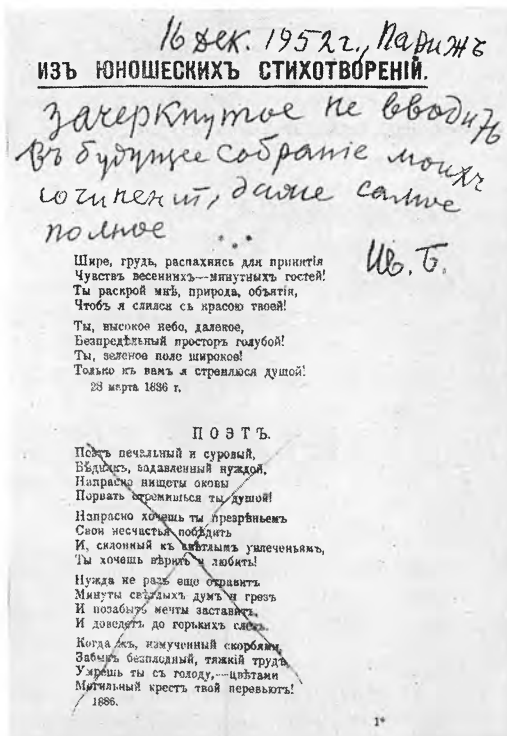 16 дек. 1952 г., Парижъ
ИЗЪ ЮНОШЕСКИХЪ СТИХОТВОРЕНІЙ.
Зачеркнутое не вводить
въ будущее собраніе моихъ
сочиненій, даже самое
полное
Ив. Б.
Шире, грудь, распахнись для принятія
Чувствъ весеннихъ—минутныхъ гостей!
Ты раскрой мнѣ, природа, объятія,
Чтобъ я слился съ красою твоей!
Ты, высокое небо, далекое,
Безпредѣльный просторъ голубой!
Ты, зеленое поле широкое!
Только къ вамъ я стремлюся душой!
28 марта 1886 г.
ПОЭТЪ.
Поэтъ печальный и суровый,
Бѣднякъ, задавленный нуждой,
Напрасно нищеты оковы
Порвать стремишься ты душой!
Напрасно хочешь ты презрѣньемъ
Свои несчастья побѣдить
И, склонный къ свѣтлымъ увлеченьямъ,
Ты хочешь вѣрить и любить!
Нужда не разъ еще отравитъ
Минуты свѣтлыхъ думъ и грезъ
И позабыть мечты заставитъ,
И доведетъ до горькихъ слезъ.
Когда жъ, измученный скорбями,
Забывъ безплодный, тяжкій трудъ,
Умрешь ты съ голоду,—цвѣтами
Могильный крестъ твой перевьютъ!
1886.
1*